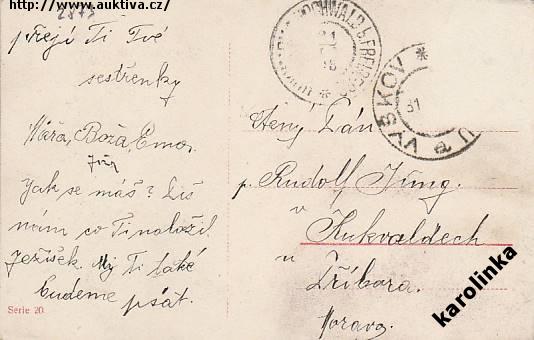 http://www.auktiva.cz/
2873
přejí Ti Tvé
sestřenky
Máňa, Boža, Ema.
Jak se máš? Piš
nám co Ti naložil
Ježíšek. My Ti také
budeme psát.
Serie 20.
HOCHWALD b. FREIBERG
VYŠKOV
31
Ctěný Pán
p. Rudolf Jung.
v
Hukvaldech
u
Příbora.
Morava.
karolinka